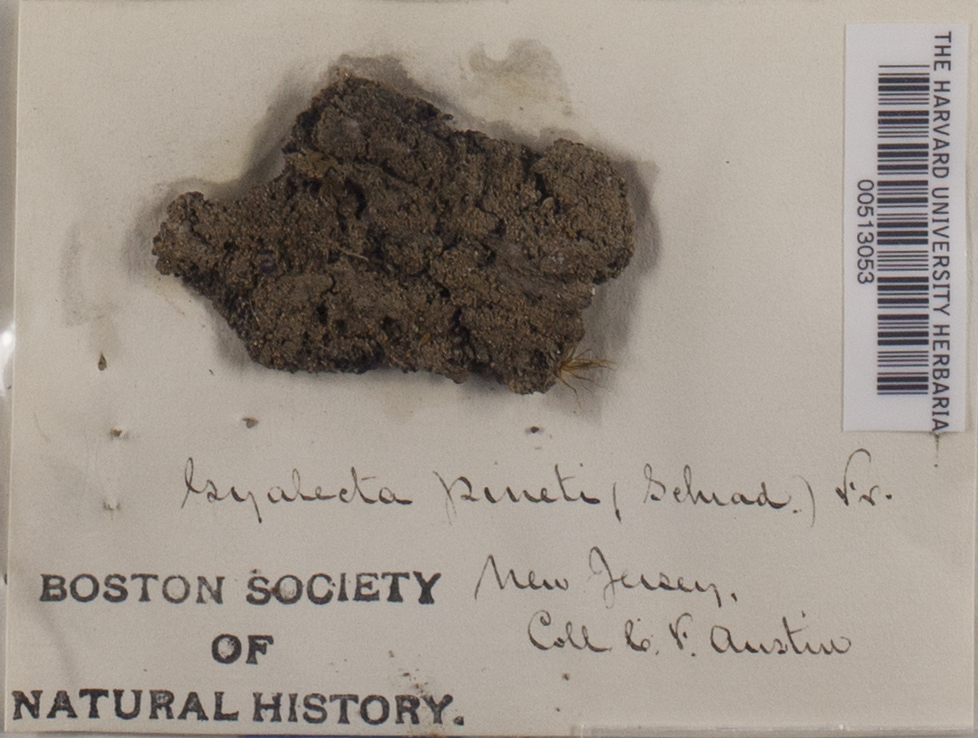 THE HARVARD UNIVERSITY HERBARIA
00513053
Gyalecta pineti (Schrad.) Fr.
New Jersey.
Coll C. F. Austin
BOSTON SOCIETY
OF
NATURAL HISTORY.